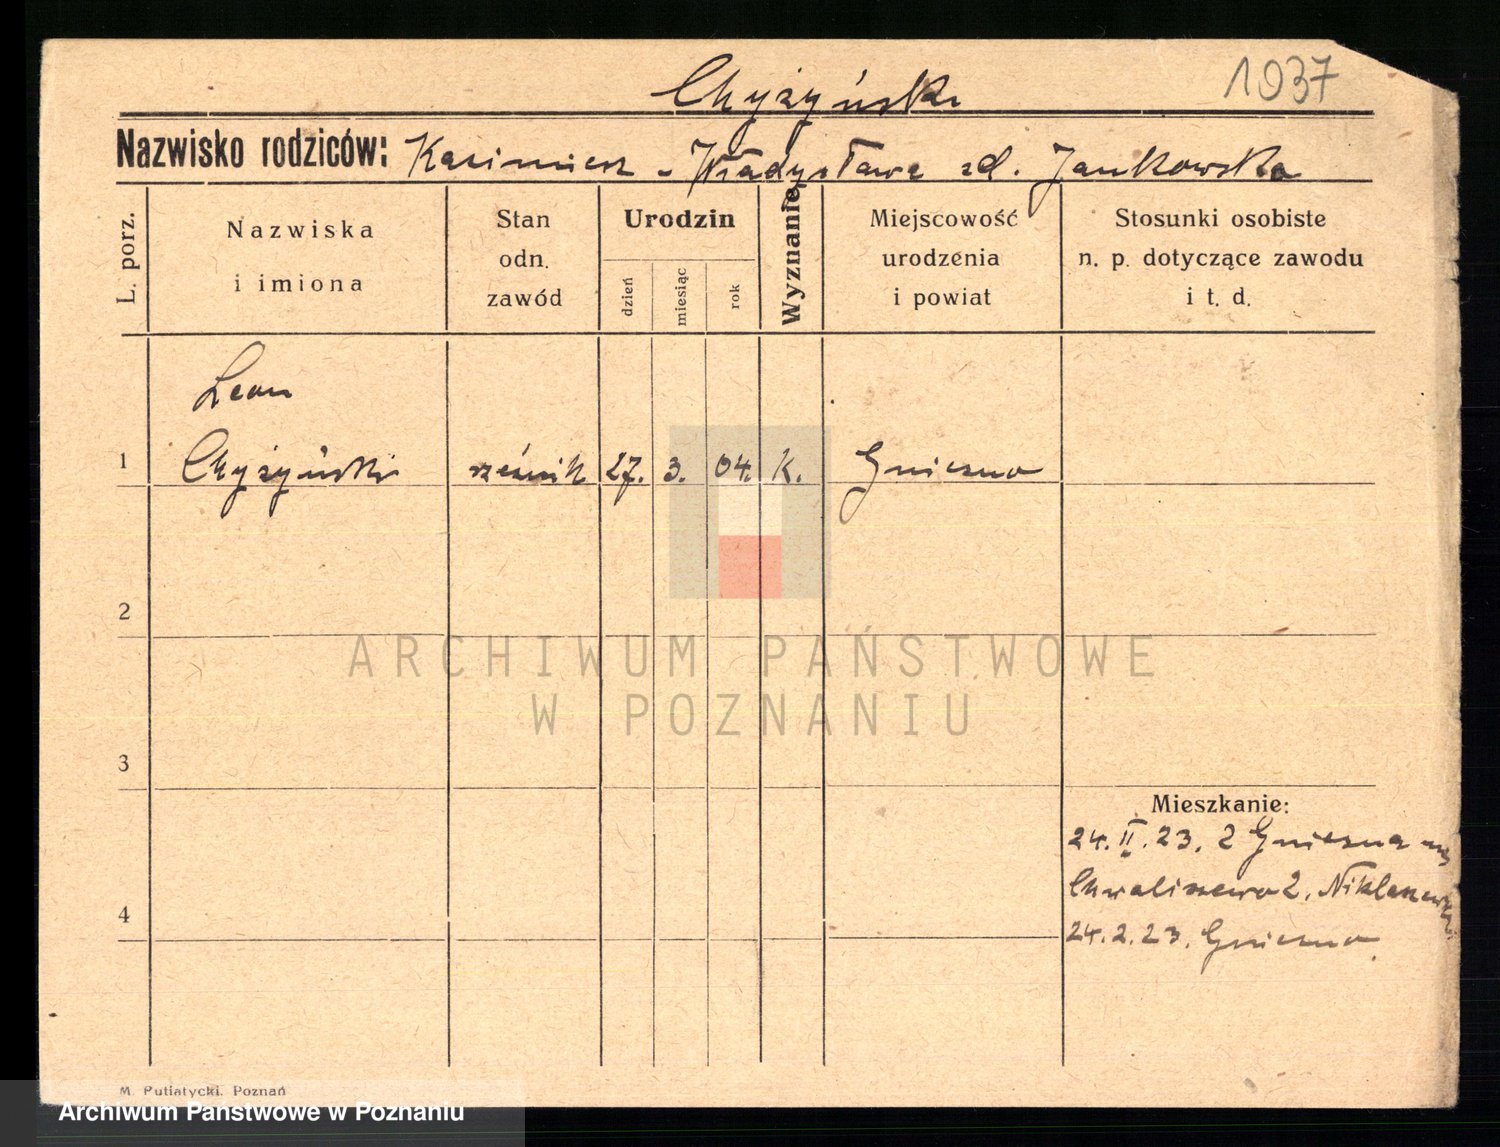 Chyżyński
1037
Nazwisko rodziców: Kazimierz - Władysława zd. Jankowska
L. porz.
Nazwiska
i imiona
Stan
odn.
zawód
Urodzin
dzień
miesiąc
rok
Wyznanie
Miejscowość
urodzenia
i powiat
Stosunki osobiste
n. p. dotyczące zawodu
i t. d.
Leon
1 Chyżyński rzeźnik 27. 3. 04. K. Gniezno
2
ARCHIWUM PAŃSTWOWE
W POZNANIU
3
Mieszkanie:
24. II. 23. z Gniezna na
Chwaliszewo 2.
4
24. 2. 23. Gniezno.
M. Putiatycki. Poznań
Archiwum Państwowe w Poznaniu